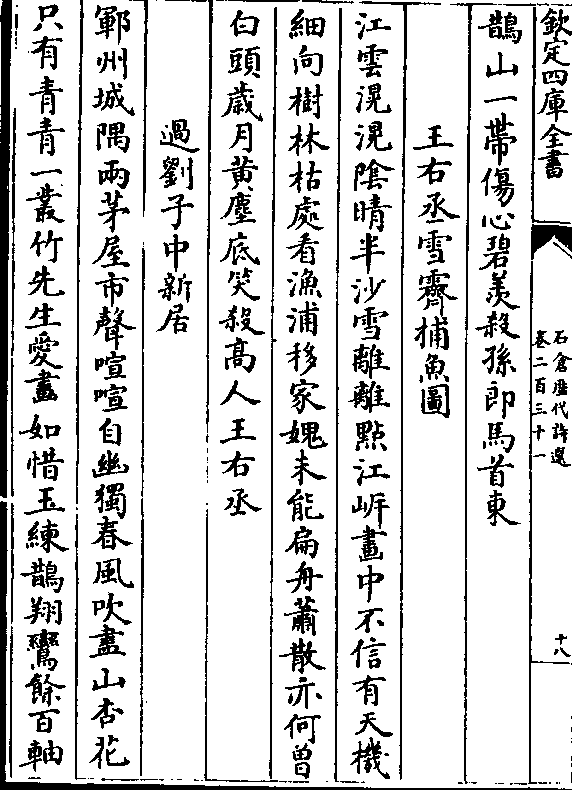 欽定四庫全書
石倉歴代詩選
卷二百三十一
十八
鵲山一帶傷心碧羨殺孫郎馬首東
王右丞雪霽捕魚圖
江雲滉滉陰晴半沙雪離離㸃江岸畫中不信有天機
細向樹林枯處看漁浦移家媿未能扁舟蕭散亦何曽
白頭歳月黄塵底笑殺髙人王右丞
過劉子中新居
鄆州城隅兩茅屋市聲喧喧自幽獨春風吹盡山杏花
只有青青一叢竹先生愛畫如惜玉練鵲翔鸞餘百軸